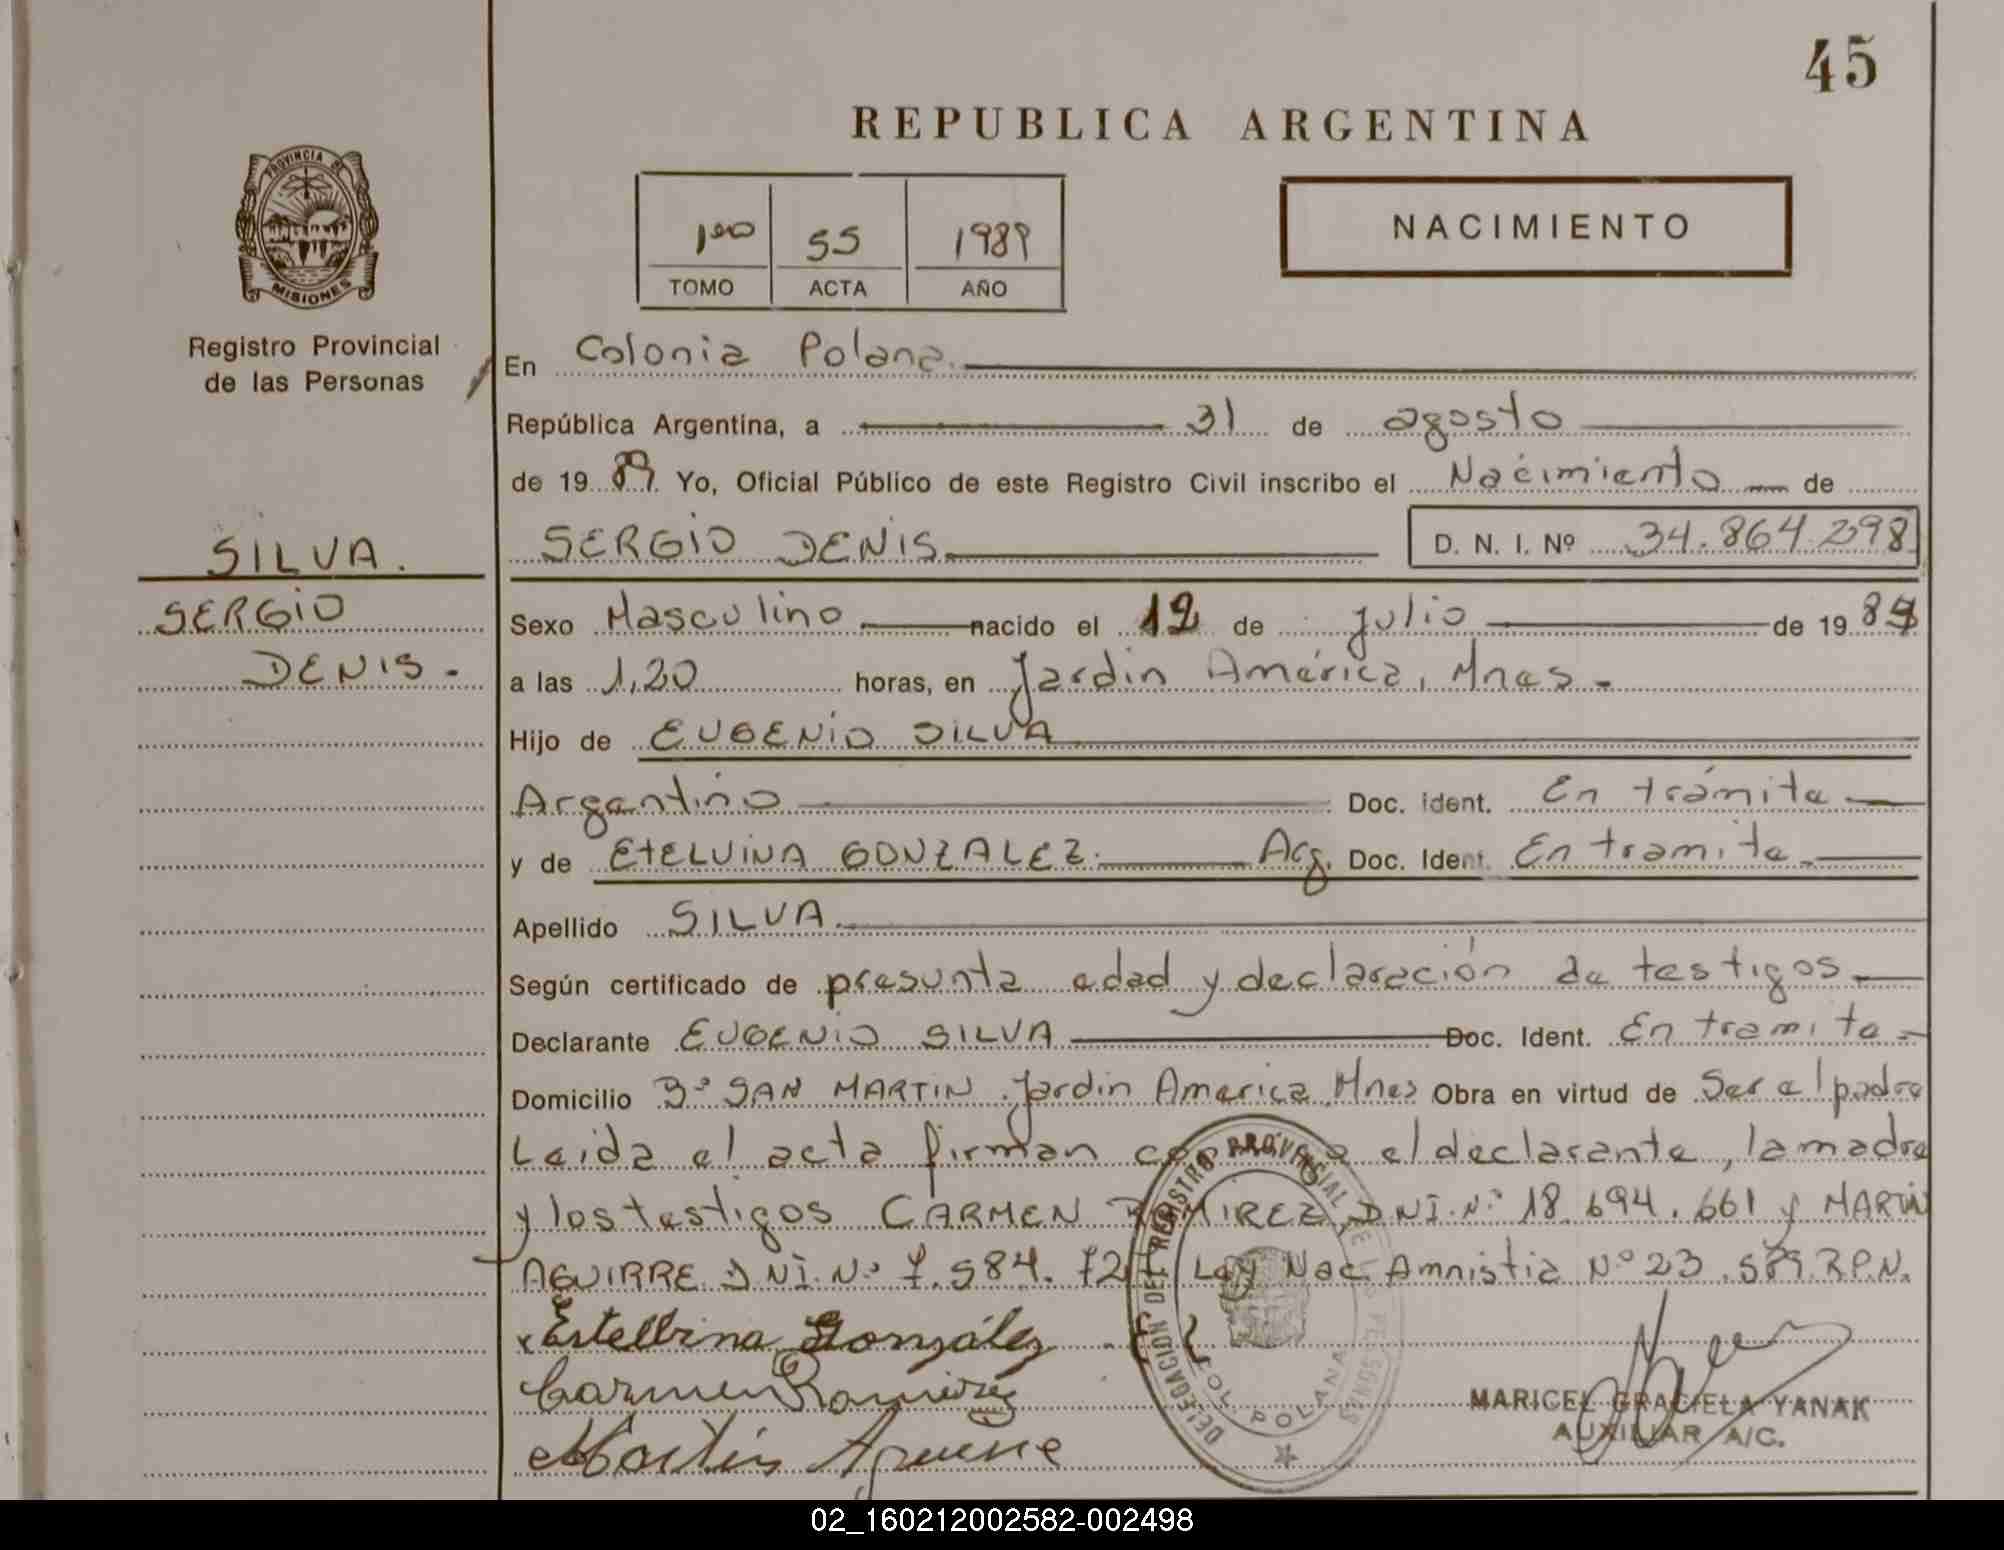 45
REPUBLICA ARGENTINA
PROVINCIA DE
MISIONES
Registro Provincial
de las Personas
1989
55
TOMO ACTA AÑO
NACIMIENTO
En Colonia Polana.
República Argentina, a 31 de agosto
de 19 89 Yo, Oficial Público de este Registro Civil inscribo el Nacimiento de
SILVA.
SERGIO DENIS
D. N. I. Nº 34.864.298
SERGIO
DENIS.-
Sexo Masculino nacido el 12 de julio de 19
a las 1,20 horas, en Jardin América, Mnes.-
Hijo de EUGENIO SILVA
Argentino Doc. ident. En trámite
y de ETELVINA GONZALEZ. Arg. Doc. Ident. En tramite.
Apellido SILVA.
Según certificado de presunta edad y declaración de testigos.
Declarante EUGENIO SILVA Doc. Ident. En tramite -
Domicilio Bº SAN MARTIN Jardin America Mnes Obra en virtud de Ser el padre
Leida el acta firman el declarante, la madre
y los testigos CARMEN RAMIREZ DNI.Nº 18.694.661 y MARTIN
AGUIRRE DNI.Nº 7.584. Ley Nac. Amnistia Nº 23.
Estelbina González
Carmen Ramirez
Martin Aguirre
DELEGACION DEL REGISTRO PROVINCIAL DE LAS PERSONAS
COL. POLANA
MARICEL GRACIELA YANAK
AUXILIAR A/C.
02_160212002582-002498